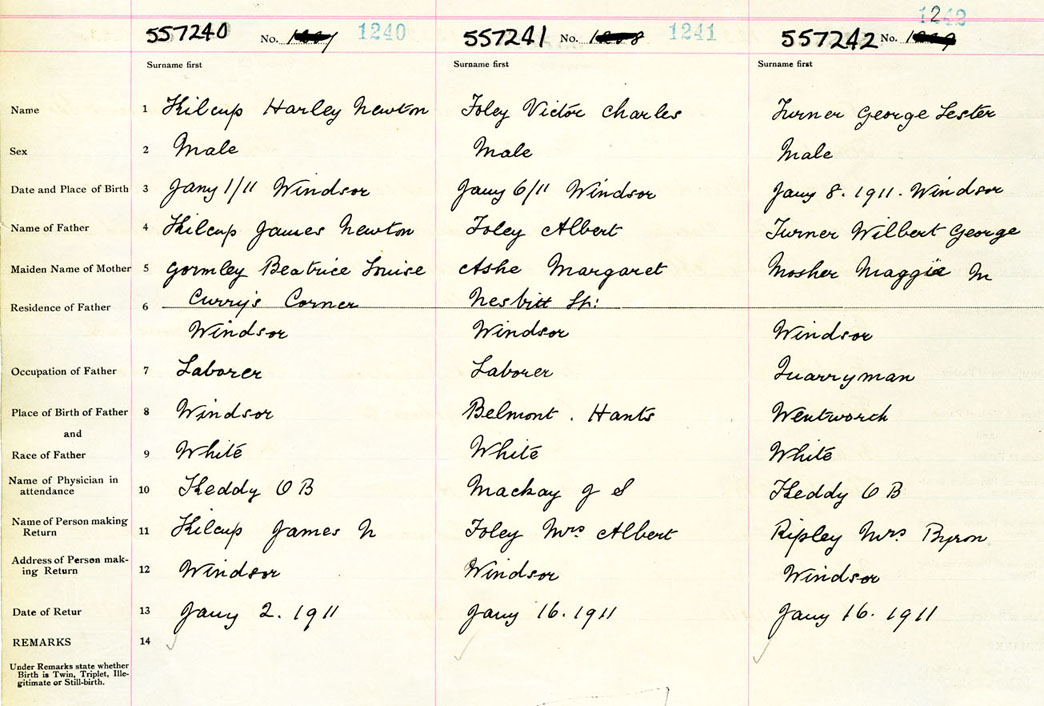 1242
557240 No. 1240
557241 No. 1241
557242 No.
Surname first Surname first Surname first
Name 1 Kilcup Harley Newton Foley Victor Charles Turner George Lester
Sex 2 Male Male Male
Date and Place of Birth 3 Jany 1/11 Windsor Jany 6/11 Windsor Jany 8. 1911. Windsor
Name of Father 4 Kilcup James Newton Foley Albert Turner Wilbert George
Maiden Name of Mother 5 Gormley Beatrice Louise Ashe Margaret Mosher Maggie M
Residence of Father 6 Curry's Corner Nesbitt St:
Windsor Windsor Windsor
Occupation of Father 7 Laborer Laborer Quarryman
Place of Birth of Father 8 Windsor Belmont . Hants Wentworth
and
Race of Father 9 White White White
Name of Physician in
attendance 10 Keddy O B Mackay J S Keddy O B
Name of Person making
Return 11 Kilcup James N Foley Mrs Albert Ripley Mrs Byron
Address of Person mak-
ing Return 12 Windsor Windsor Windsor
Date of Retur 13 Jany 2. 1911 Jany 16. 1911 Jany 16. 1911
REMARKS 14
Under Remarks state whether
Birth is Twin, Triplet, Ille-
gitimate or Still-birth.